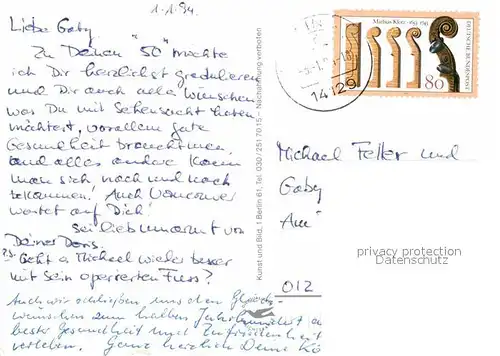 1.1.94.
Liebe Gaby,
Zu Deinen "50" möchte
ich Dir herzlichst gratulieren
und Dir auch alles wünschen
was Du mit Sehnsucht haben
möchtest, vorallem gute
Gesundheit braucht man,
und alles andere kann
man sich nach und nach
bekommen! Auch Vancouver
wartet auf Dich!
Sei lieb umarmt von
Deiner Doris.
P.S. Geht's Michael wieder besser
mit sein operierten Fuss?
Auch wir schließen uns den Glück-
wünschen zum halben Jahrhundert an
beste Gesundheit und Zufriedenheit
verleben. Ganz herzlich Deine
Kunst und Bild, 1 Berlin 61, Tel. 030 / 251 70 15 – Nachahmung verboten
Mathias Klotz 1653-1743
DEUTSCHE BUNDESPOST
80
14129
Michael Feller und
Gaby
Am
012
privacy protection
Datenschutz